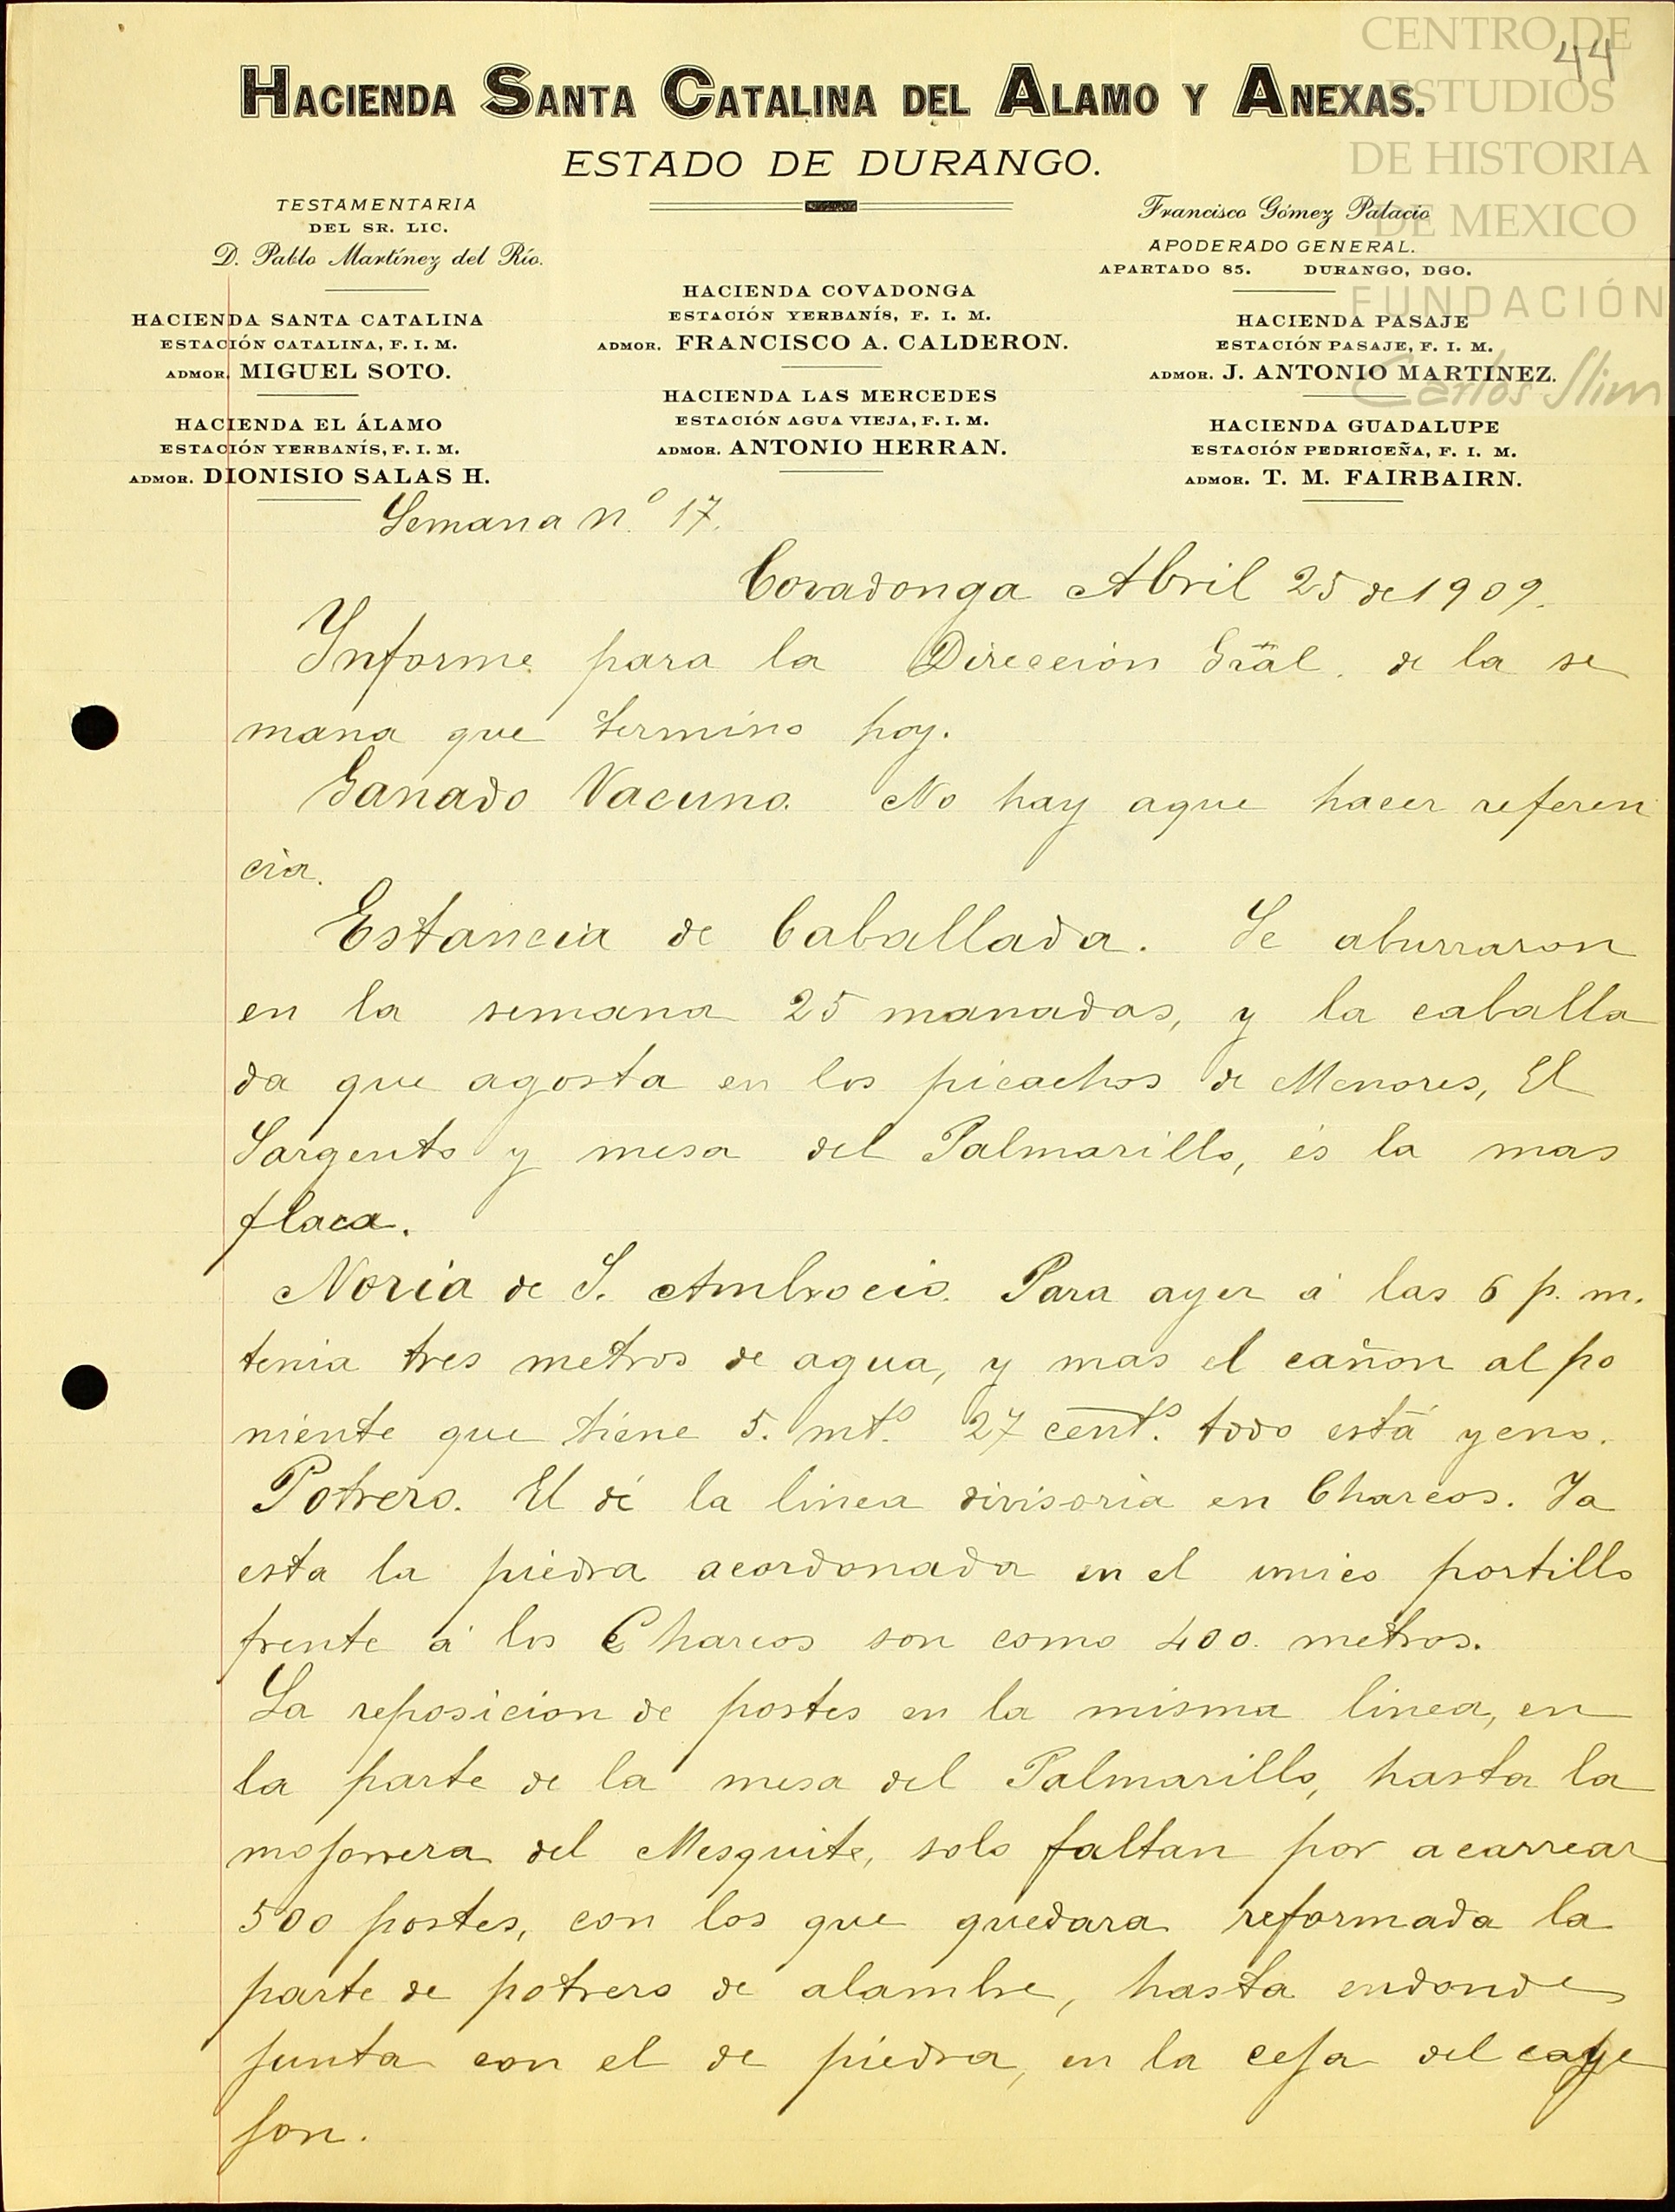 44
CENTRO DE
ESTUDIOS
DE HISTORIA
DE MEXICO
FUNDACIÓN
Carlos Slim
HACIENDA SANTA CATALINA DEL ALAMO Y ANEXAS.
ESTADO DE DURANGO.
TESTAMENTARIA
DEL SR. LIC.
D. Pablo Martínez del Río.
HACIENDA SANTA CATALINA
ESTACIÓN CATALINA, F. I. M.
ADMOR. MIGUEL SOTO.
HACIENDA EL ÁLAMO
ESTACIÓN YERBANÍS, F. I. M.
ADMOR. DIONISIO SALAS H.
HACIENDA COVADONGA
ESTACIÓN YERBANÍS, F. I. M.
ADMOR. FRANCISCO A. CALDERON.
HACIENDA LAS MERCEDES
ESTACIÓN AGUA VIEJA, F. I. M.
ADMOR. ANTONIO HERRAN.
Francisco Gómez Palacio
APODERADO GENERAL.
APARTADO 85. DURANGO, DGO.
HACIENDA PASAJE
ESTACIÓN PASAJE, F. I. M.
ADMOR. J. ANTONIO MARTINEZ.
HACIENDA GUADALUPE
ESTACIÓN PEDRICEÑA, F. I. M.
ADMOR. T. M. FAIRBAIRN.
Semana n.º 17.
Covadonga Abril 25 de 1909.
Informe para la Dirección Gral. de la se
mana que termino hoy.
Ganado Vacuno. No hay aque hacer referen
cia.
Estancia de Caballada. Se aburraron
en la semana 25 manadas, y la caballa
da que agosta en los picachos de Menores, El
Sargento y mesa del Palmarillo, és la mas
flaca.
Noria de S. Ambrocio. Para ayer á las 6 p. m.
tenia tres metros de agua, y mas el cañon al po
niente que tiene 5. mtº. 27 centº. todo está yeno.
Potrero. El dé la linea divisoria en Charcos. Ya
esta la piedra acordonada en el unico portillo
frente á los Charcos son como 400. metros.
La reposicion de postes en la misma linea, en
la parte de la mesa del Palmarillo, hasta la
mojonera del Mesquite, solo faltan por acarrear
500 postes, con los que quedara reformada la
parte de potrero de alambre, hasta endonde
junta con el de piedra, en la ceja del caye
jon.